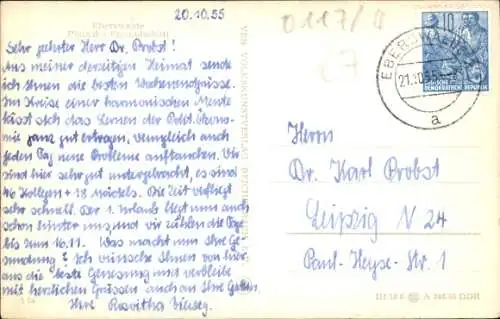 20.10.55
Eberswalde
Sehr geehrter Herr Dr. Probst!
Aus meiner derzeitigen Heimat sende
ich Ihnen die besten Wochenendgrüsse.
Im Kreise einer harmonischen Meute
lässt sich das Lernen der Polit. Ökono-
mie ganz gut ertragen, wenngleich auch
jeden Tag neue Probleme auftauchen. Wir
sind hier sehr gut untergebracht, es sind
46 Kollegen + 18 Mädels. Die Zeit verfliegt
sehr schnell. Der 1. Urlaub liegt nun auch
schon hinter uns und wir zählen die Tage
bis zum 16.11. Was macht nun Ihre Ge-
sundung? Ich wünsche Ihnen von hier
aus die beste Genesung und verbleibe
mit herzlichen Grüssen auch an Ihre Gattin.
Ihre Roswitha
VEB VOLKSKUNSTVERLAG REICHENBACH
0117/
10
EBERSWALDE
21.10.55
a
DEUTSCHE
DEMOKRATISCHE REPUBLIK
Herrn
Dr. Karl Probst
Leipzig N 24
Paul-Heyse-Str. 1
DDR